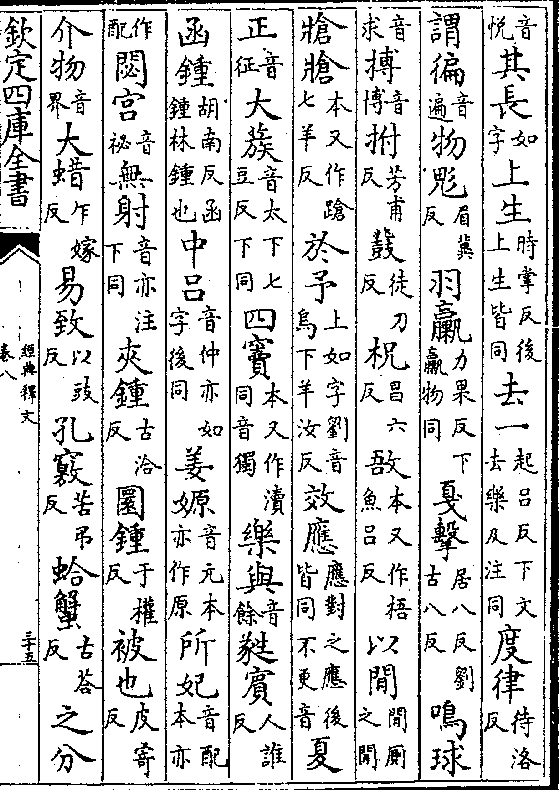 音悅其長如字上生時掌反後上生皆同去一起呂反下文去樂及注同度律待洛反
謂徧音遍物鬽眉冀反羽臝力果反下臝物同戛擊居八反劉古八反鳴球
音求搏音博拊芳甫反鼗徒刀反柷昌六反敔本又作梧魚呂反以間間廁之間
牄牄本又作蹌七羊反於予上如字劉音烏下羊汝反效應應對之應後皆同不更音夏
正音征大蔟音太下七豆反下同四竇本又作瀆同音獨樂與音餘蕤賓人誰反
函鍾胡南反函鍾林鍾也中呂音仲亦如字後同姜嫄音元本亦作原所妃音配本亦
作配閟宮音祕無射音亦注下同夾鍾古洽反圜鍾于權反被也皮寄反
介物音界大蜡乍嫁反易致以豉反孔竅苦吊反蛤蟹古荅反之分
欽定四庫全書
經典釋文
卷八
三十五